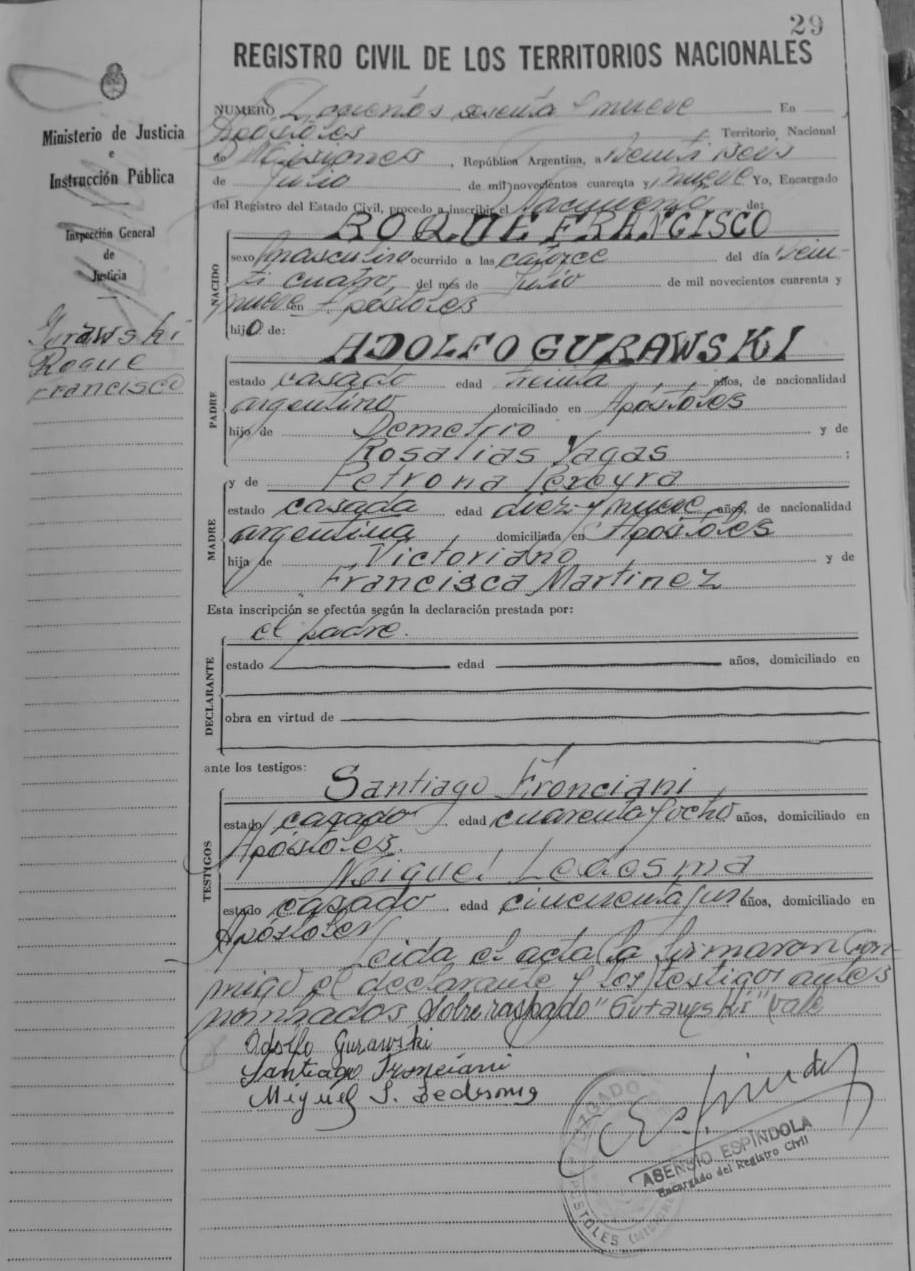 29
REGISTRO CIVIL DE LOS TERRITORIOS NACIONALES
Ministerio de Justicia
e
Instrucción Pública
Inspección General
de
Justicia
Gurawski
Roque
Francisco
NUMERO Doscientos sesenta y nueve En
Apóstoles, Territorio Nacional
de Misiones, República Argentina, a veinti seis
de Julio de mil novecientos cuarenta y nueve Yo, Encargado
del Registro del Estado Civil, procedo a inscribir el Nacimiento de:
ROQUE FRANCISCO
NACIDO
sexo masculino ocurrido a las catorce del día vein-
ti cuatro, del mes de Julio de mil novecientos cuarenta y
nueve en Apóstoles
hijo de:
ADOLFO GURAWSKI
PADRE
estado casado edad treinta años, de nacionalidad
argentino domiciliado en Apóstoles
hijo de Demetrio y de
Rosalias Yagas ;
y de Petrona Pereyra
MADRE
estado casada edad diez y nueve años, de nacionalidad
argentina domiciliada en Apóstoles
hija de Victoriano y de
Francisca Martinez
Esta inscripción se efectúa según la declaración prestada por:
el padre.
DECLARANTE
estado edad años, domiciliado en
obra en virtud de
ante los testigos:
Santiago Fronciani
TESTIGOS
estado casado edad cuarenta y ocho años, domiciliado en
Apóstoles.
Miguel Ledesma
estado casado edad cincuenta y un años, domiciliado en
Apóstoles
Leida el acta la firmaron con-
migo el declarante y los testigos antes
nombrados Sobre raspado "Gurawski" vale
Adolfo Gurawski
Santiago Fronciani
Miguel S. Ledesma
ASENSIO ESPINDOLA
Encargado del Registro Civil
JUZGADO
APOSTOLES